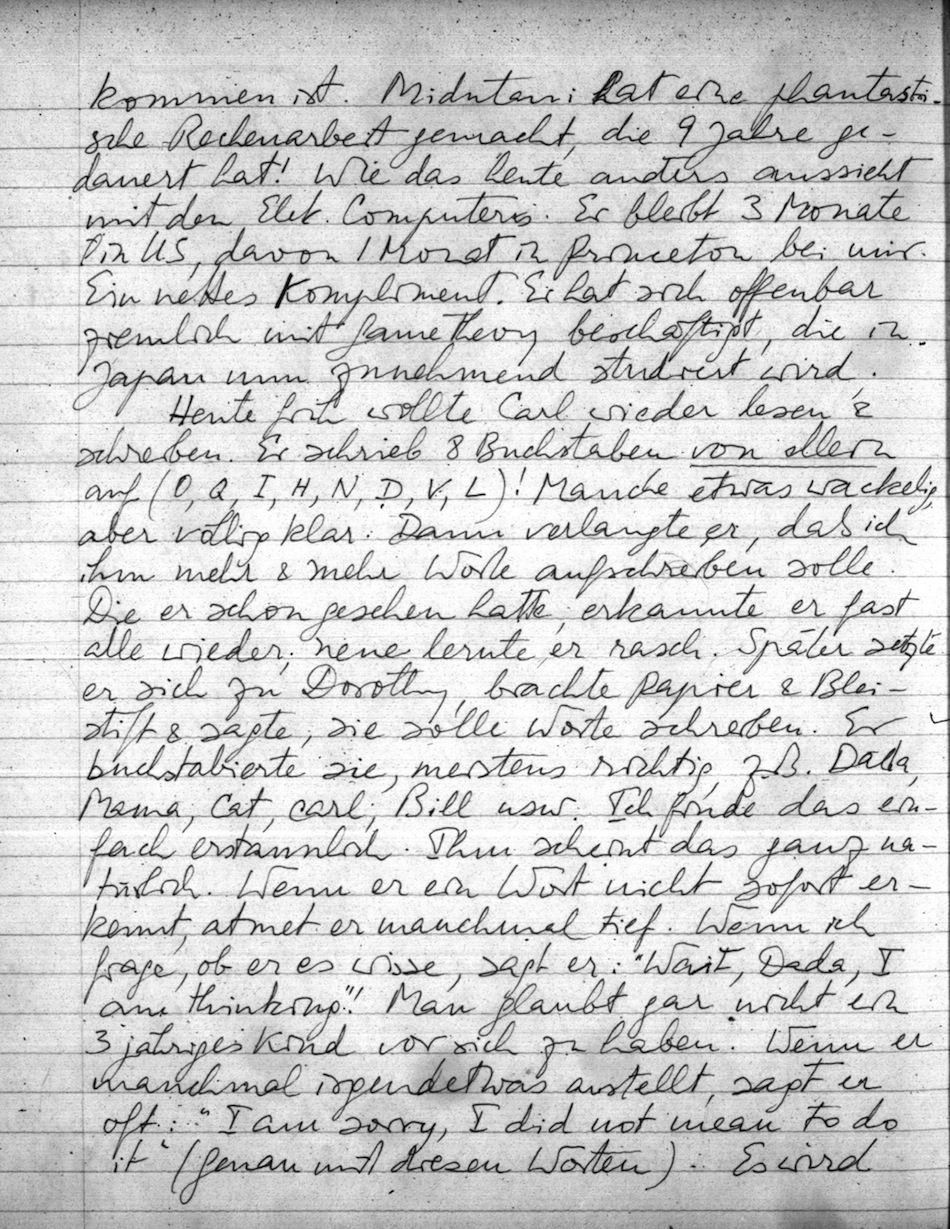 kommen ist. Midutani hat eine phantasti-
sche Rechenarbeit gemacht, die 9 Jahre ge-
dauert hat! Wie das heute anders aussieht
mit den Elek. Computers. Er bleibt 3 Monate
in US, davon 1 Monat in Princeton bei mir.
Ein nettes Kompliment. Er hat sich offenbar
ziemlich mit Gametheory beschäftigt, die in
Japan nun zunehmend studiert wird.
Heute früh wollte Carl wieder lesen &
schreiben. Er schrieb 8 Buchstaben von allein
auf (O, Q, I, H, N, D, V, L)! Manche etwas wackelig,
aber völlig klar. Dann verlangte er, daß ich
ihm mehr & mehr Worte aufschreiben solle.
Die er schon gesehen hatte, erkannte er fast
alle wieder; neue lernte er rasch. Später setzte
er sich zu Dorothy, brachte Papier & Blei-
stift & sagte, sie solle Worte schreiben. Er
buchstabierte sie, meistens richtig, z.B. Dada,
Mama, Cat, Carl, Bill usw. Ich finde das ein-
fach erstaunlich. Ihm scheint das ganz na-
türlich. Wenn er ein Wort nicht sofort er-
kennt, atmet er manchmal tief. Wenn ich
frage, ob er es wisse, sagt er: "Wait, Dada, I
am thinking"! Man glaubt gar nicht ein
3 jähriges Kind vor sich zu haben. Wenn er
manchmal irgendetwas anstellt, sagt er
oft: "I am sorry, I did not mean to do
it" (genau mit diesen Worten). Es wird